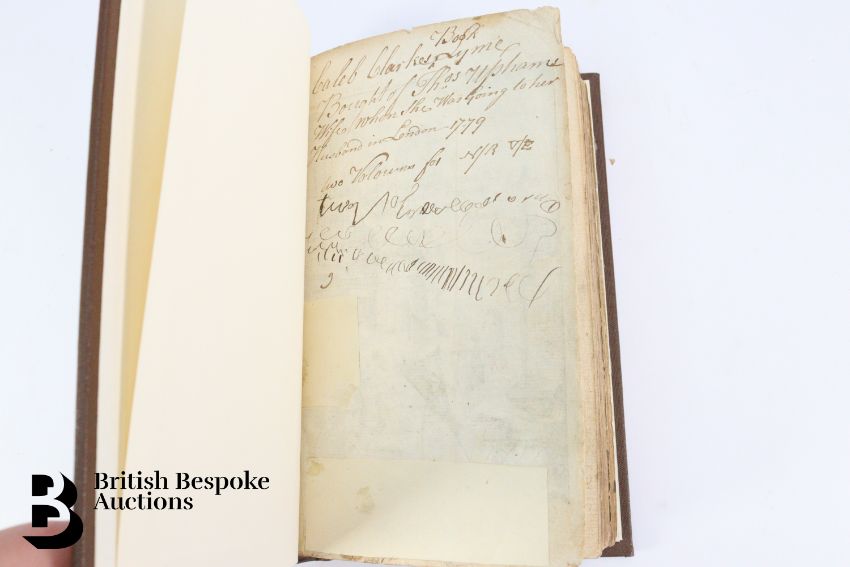 Book
Caleb Clarkes Lyme
Bought of Thos Upham
Wife when She Was Going to her
Husband in London 1779
two Voloums for
two
British Bespoke
Auctions